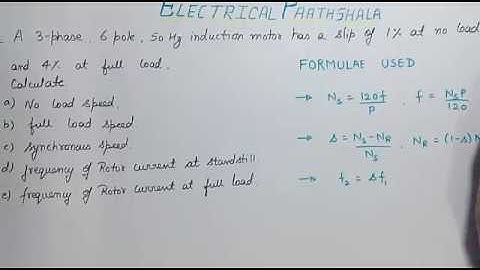 ELECTRICAL PAATHSHALA
A 3-phase, 6 pole, 50 Hz induction motor has a slip of 1% at no load
and 4% at full load.
Calculate
a) No load speed.
b) full load speed
c) synchronous speed.
d) frequency of Rotor current at standstill.
e) frequency of Rotor current at full load.
FORMULAE USED
→ Ns = 120f/P , f = NsP/120
→ s = Ns-NR/Ns , NR = (1-s)N
→ f2 = sf1